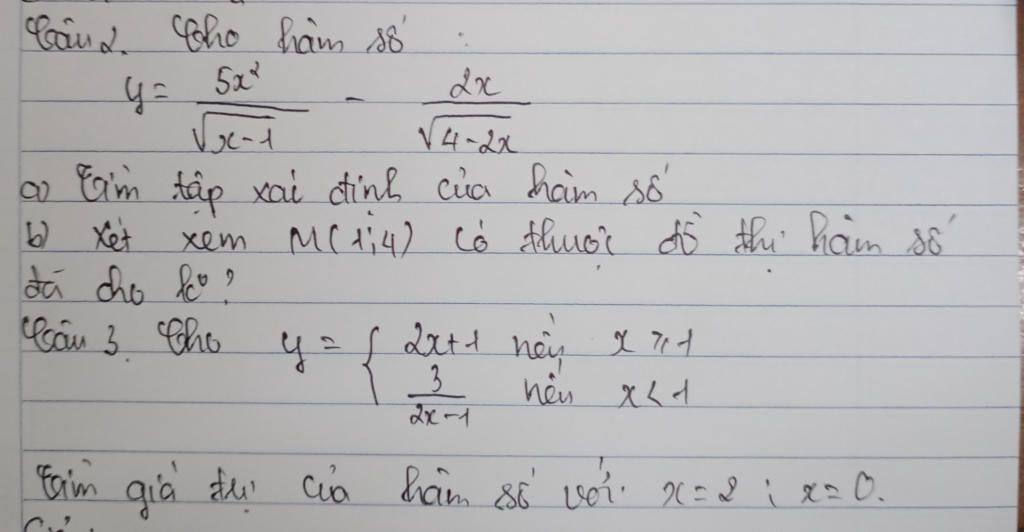 Câu 2. Cho hàm số :
y = 5x²/√(x-1) - 2x/√(4-2x)
a) Tìm tập xai định của hàm số
b) Xét xem M(1;4) có thuọc đồ thị hàm số
đã cho k°?
Câu 3. Cho y = { 2x+1 nếu x ≥ 1
3/(2x-1) nếu x < 1
Tìm giá trị của hàm số với x = 2 ; x = 0.